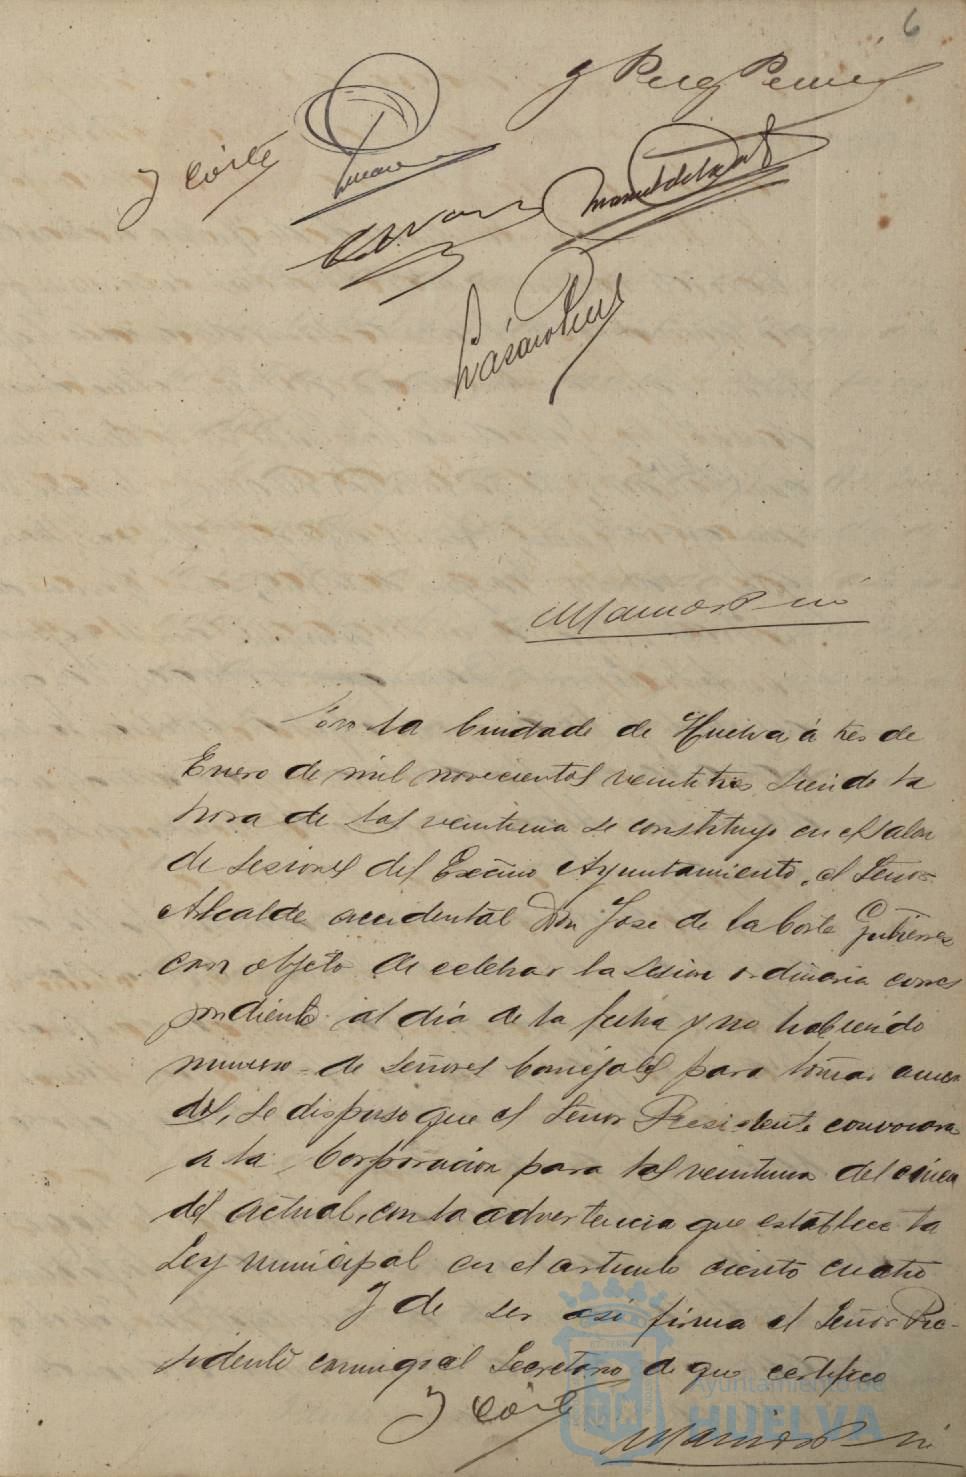 6
J Corte
En la Ciudad de Huelva á tres de
Enero de mil novecientos veintitres, siendo la
hora de las veintiuna se constituyo en el Salon
de Sesiones del Excmo Ayuntamiento, el Señor
Alcalde accidental Don Jose de la Corte Gutierrez
con objeto de celebrar la Sesion ordinaria corres
pondiente al día de la fecha y no habiendo
numero de Señores Concejales para tomar acuer
dos, se dispuso que el Señor Presidente convocara
a la Corporacion para las veintiuna del cinco
del actual, con la advertencia que establece la
Ley municipal en el articulo ciento cuatro
Y de ser asi firma el Señor Pre-
sidente conmigo el Secretario de que certifico
J Corte
Ayuntamiento de
HUELVA